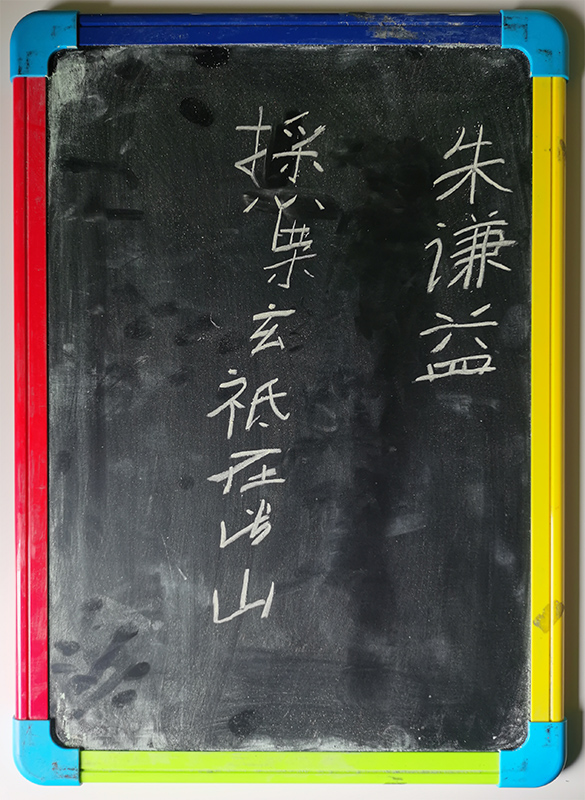 朱谦益
採巢玄祗在此山